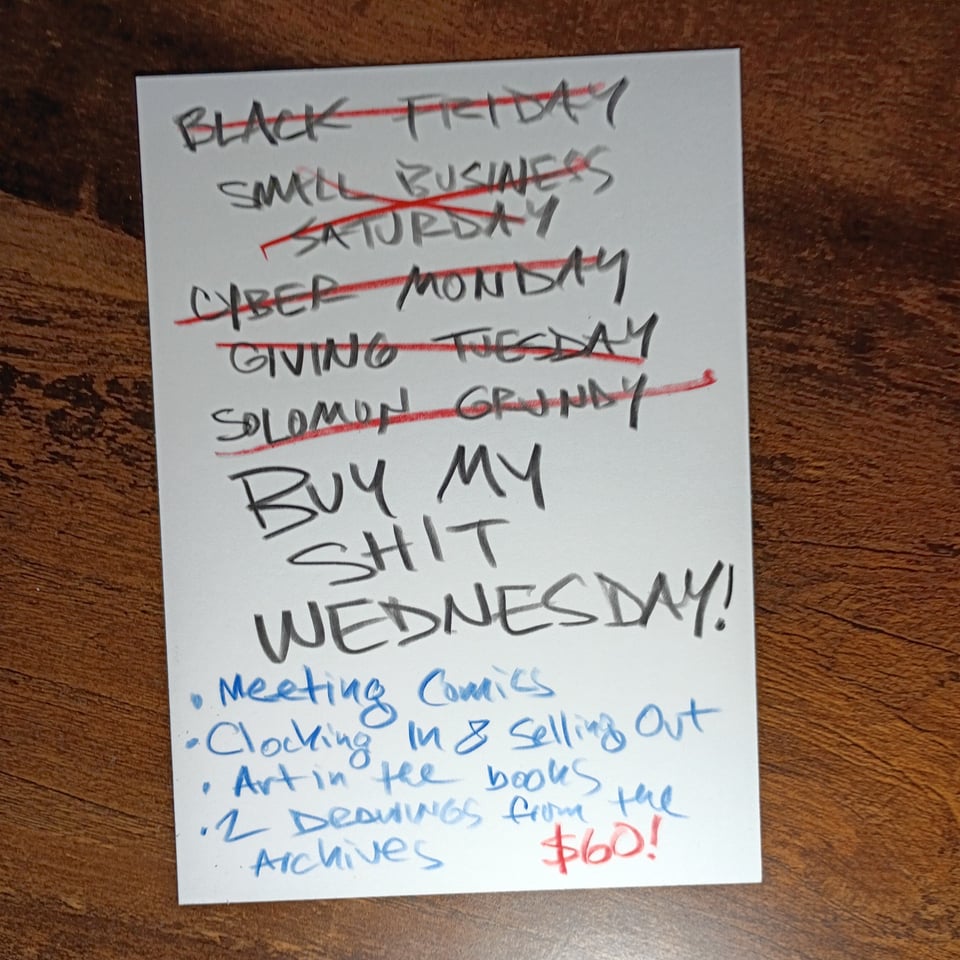 BLACK FRIDAY
SMALL BUSINESS
SATURDAY
CYBER MONDAY
GIVING TUESDAY
SOLOMON GRUNDY
BUY MY
SHIT
WEDNESDAY!
• Meeting Comics
• Clocking In & Selling Out
• Art in the books
• 2 DRAWINGS from the
Archives $60!